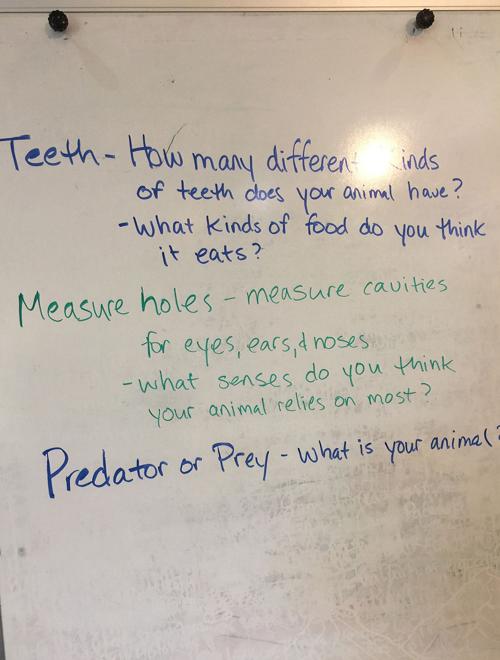 Teeth - How many different kinds
of teeth does your animal have?
- What kinds of food do you think
it eats?
Measure holes - measure cavities
for eyes, ears, & noses
- what senses do you think
your animal relies on most?
Predator or Prey - What is your animal?